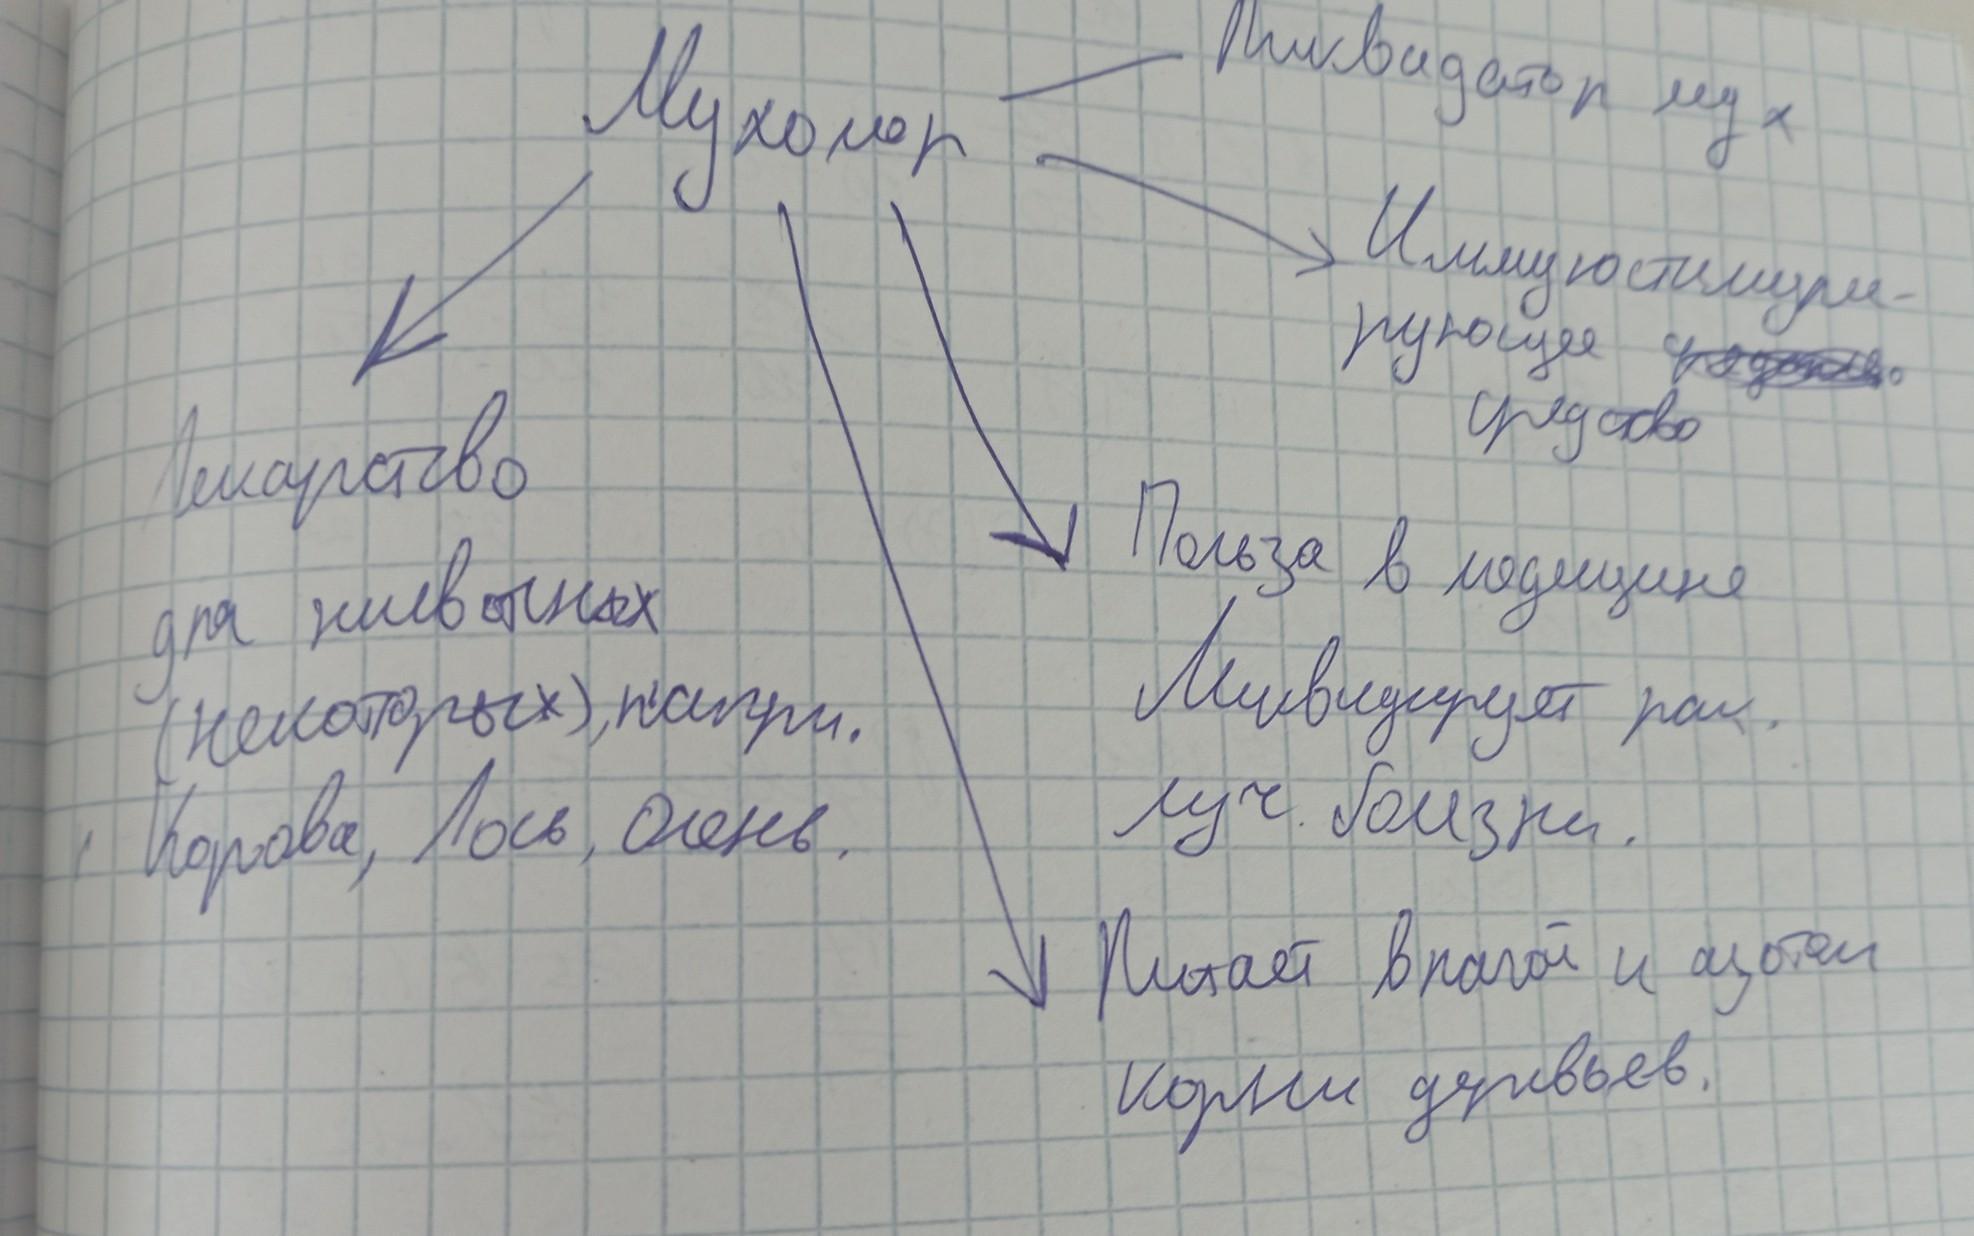 Мухомор
Ликвидатор мух
Иммуюстимули-
рующее
средство
Польза в медицине
Ликвидирует рак.
луч. болизни.
Питает влагой и азотом
корни деревьев.
Лекарство
для животных
(некоторых), напри.
Корова, Лось, Олень.